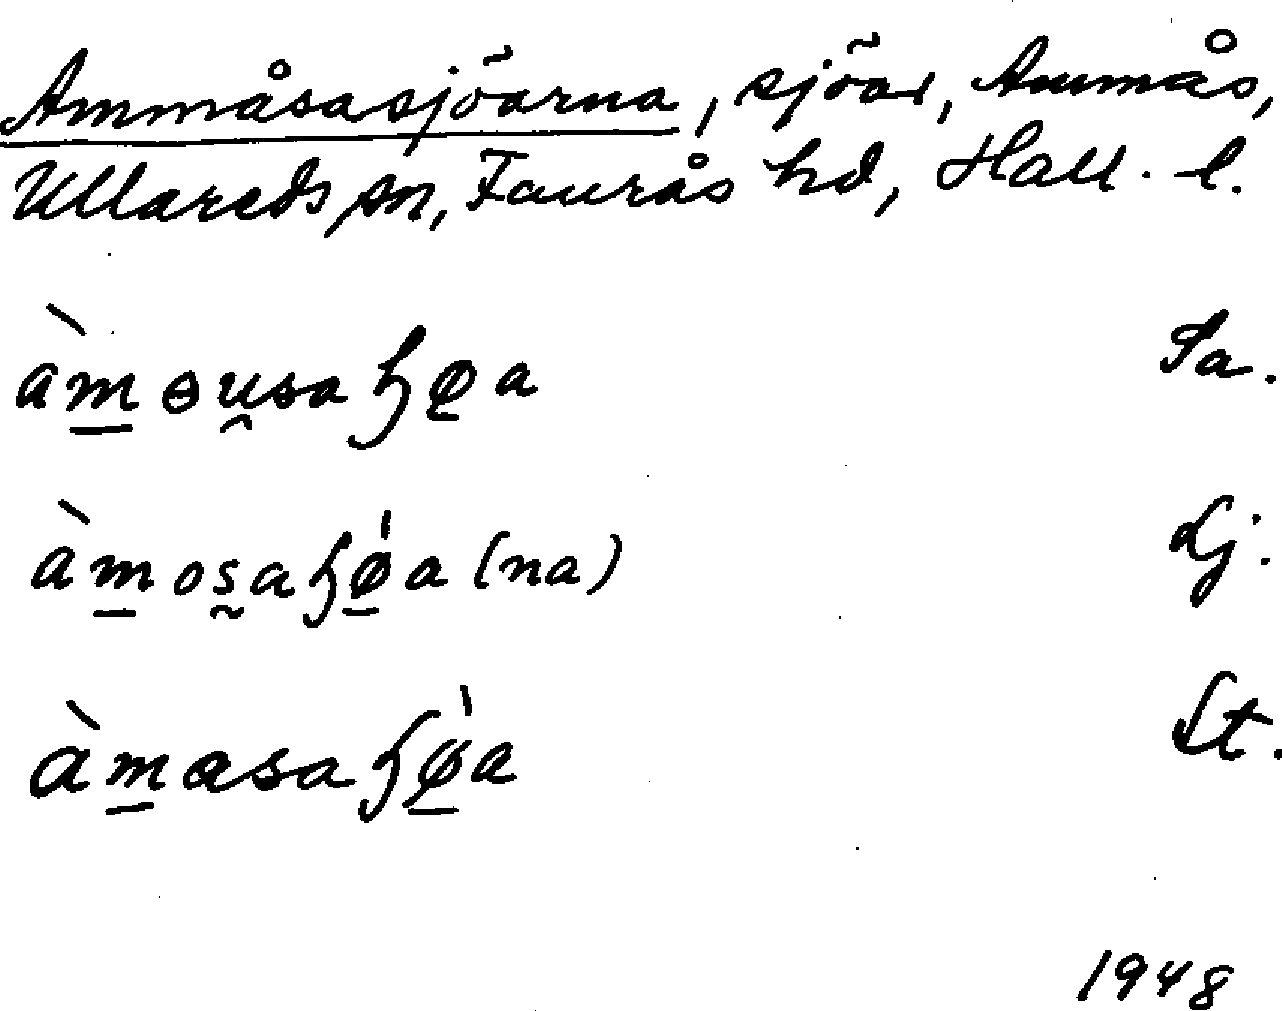 Ammåsasjöarna, sjöar, Ammås,
Ullareds sn, Faurås hd, Hall. l.
àm̲ɵu̯saɧø̲a Sa.
àm̲os̰aɧø̲̍a (na) Lj.
àm̲asaɧø̲̍a St.
1948